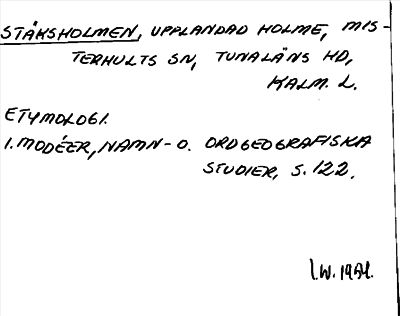 STÅKSHOLMEN, UPPLANDAD HOLME, MIS-
TERHULTS SN, TUNALÄNS HD,
KALM. L.
ETYMOLOGI.
I. MODÉER, NAMN- O. ORDGEOGRAFISKA
STUDIER, S. 122.
I.W. 1954.